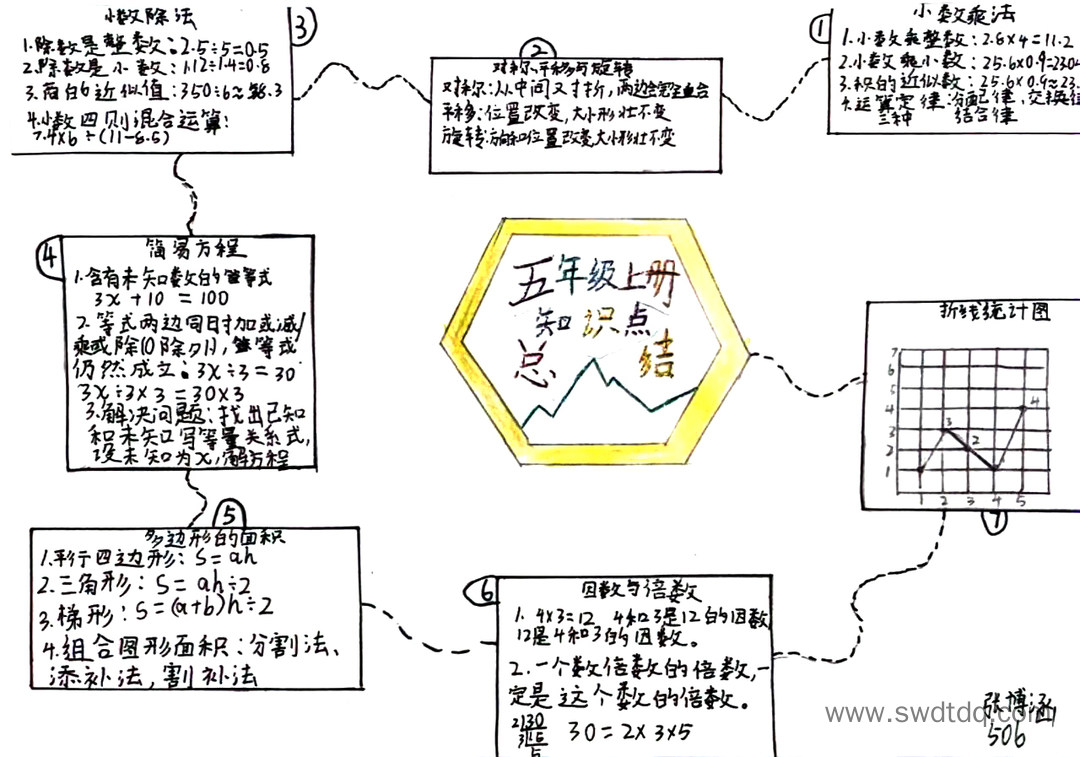 小数乘法
1
1.小数乘整数:2.8×4=11.2
2.小数乘小数:25.6×0.9=2304
3.积的近似数:25.6×0.9≈23
4.运算定律:分配律、交换律
三种 结合律
2
对称、平移与旋转
对称:从中间对折,两边会完全重合
平移:位置改变,大小形壮不变
旋转:方向和位置改变,大小形壮不变
3
小数除法
1.除数是整数:2.5÷5=0.5
2.除数是小数:1.12÷1.4=0.8
3.商的近似值:350÷6≈58.3
4.小数四则混合运算:
7.4×6÷(11-8.5)
4
简易方程
1.含有未知数的等式
3x+10=100
2.等式两边同时加或减/
乘或除(0除外),等式
仍然成立:3x÷3=30
3x÷3×3=30×3
3.解决问题:找出已知
和未知写等量关系式,
设未知为x,解方程
五年级上册
知识点
总结
折线统计图
7
6
5
4
3
2
1
3
2
4
1 2 3 4 5
7
5
多边形的面积
1.平行四边形:S=ah
2.三角形:S=ah÷2
3.梯形:S=(a+b)h÷2
4.组合图形面积:分割法、
添补法,割补法
6
因数与倍数
1. 4×3=12 4和3是12的因数
12是4和3的因数。
2.一个数倍数的倍数,一
定是这个数的倍数。
2|30
3|15
5
30=2×3×5
张博涵
506
www.swdtdq.com